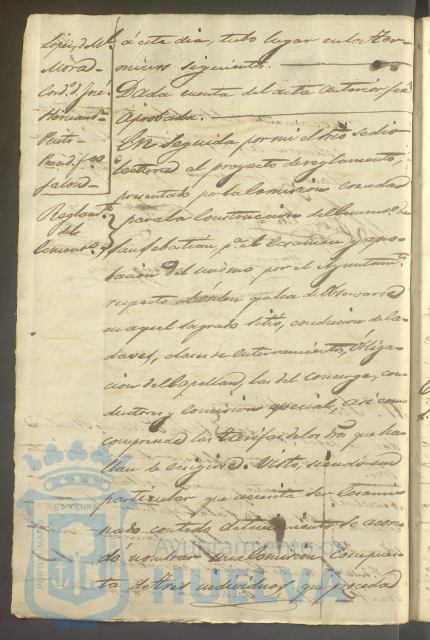 Lopez, d. M.l
Mora-
Cord.n d. José
Hernand.z
Pinto-
Presid. f.
Reglam.to
del
Cement.o
á este dia, tubo lugar en los ter-
minos siguientes.
Dada cuenta del acta anterior, fué
aprobada.
En seguida por mi el Srio se dió
lectura al proyecto de reglamento,
presentado por la Comision creada
para la construccion del Cement.o de
San Sebastian, p.a el Ecsamen y apro-
bacion del mismo, por el Ayuntam.to
respecto al órden que ha de Observarse
en aquel sagrado sitio, conduccion de ca-
daveres, clases de enterramientos, Obliga-
cion del Capellan, las del Conserge, con-
ductores y Comision especial, asi como
comprende las tarifas de los dros que ha-
llan de ecsigirse. Visto, siendo un
particular que necesita ser Ecsami-
nado con todo detenimiento se acor-
dó nombrar una Comision compues-
ta de tres individuos, que proceda
Ayuntamiento de
HUELVA